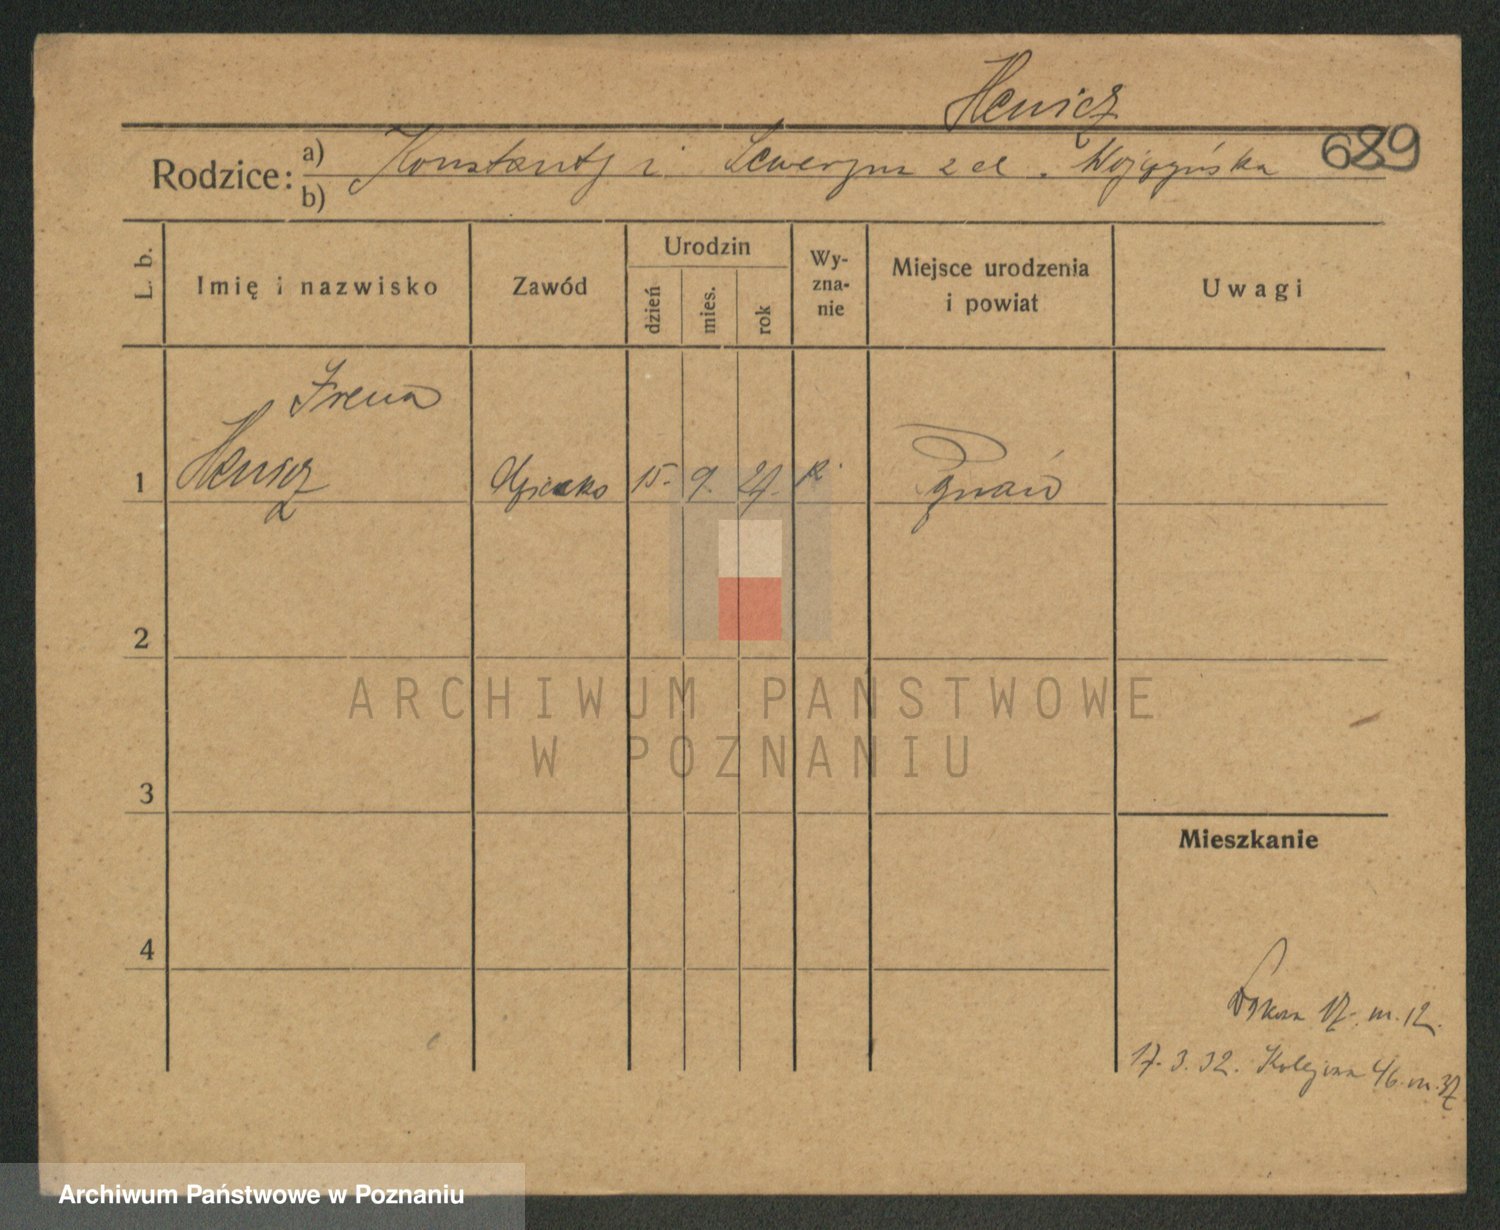 Henicz
689
Rodzice: a) Konstanty i Seweryna z d. Wojczyńska
b)
L. b.
Imię i nazwisko
Zawód
Urodzin
dzień
mies.
rok
Wy-
zna-
nie
Miejsce urodzenia
i powiat
Uwagi
Irena
1 Henicz dziecko 15. 9. 27. Poznań
2
3
4
Mieszkanie
17. m. 12.
17. 3. 32. Kolejowa 46. m. 37
ARCHIWUM PAŃSTWOWE
W POZNANIU
Archiwum Państwowe w Poznaniu